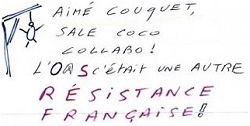 AIMÉ COUQUET,
SALE COCO
COLLABO!
L'O@S c'ÉTAIT UNE AUTRE
RÉSISTANCE
FRANÇAISE!!